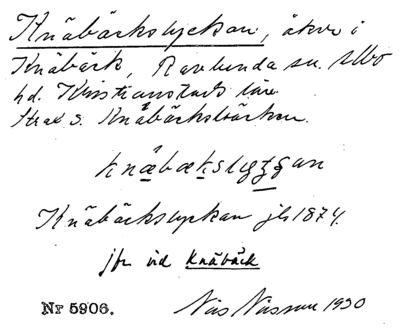 Knäbäckslyckan, åker i
Knäbäck, Ravlunda sn. Albo
hd. Kristianstads län
strax s. Knäbäcksbäcken.
Knäbäckslyckan jb 1874.
jfr vid Knäbäck
Nr 5906. Nils Nilsson 1930